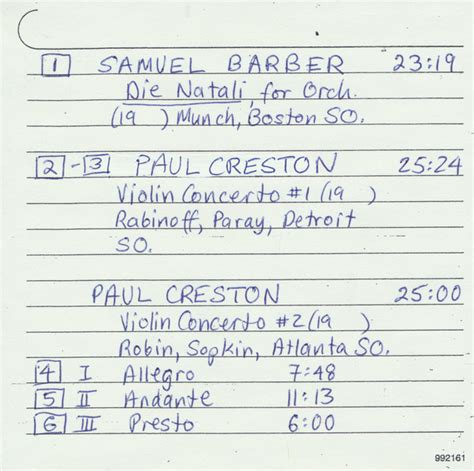 1 SAMUEL BARBER 23:19
Die Natali, for Orch.
(19 ) Munch, Boston SO.
2 - 3 PAUL CRESTON 25:24
Violin Concerto #1 (19 )
Rabinoff, Paray, Detroit
SO.
PAUL CRESTON 25:00
Violin Concerto #2 (19 )
Robin, Sopkin, Atlanta SO.
4 I Allegro 7:48
5 II Andante 11:13
6 III Presto 6:00
992161